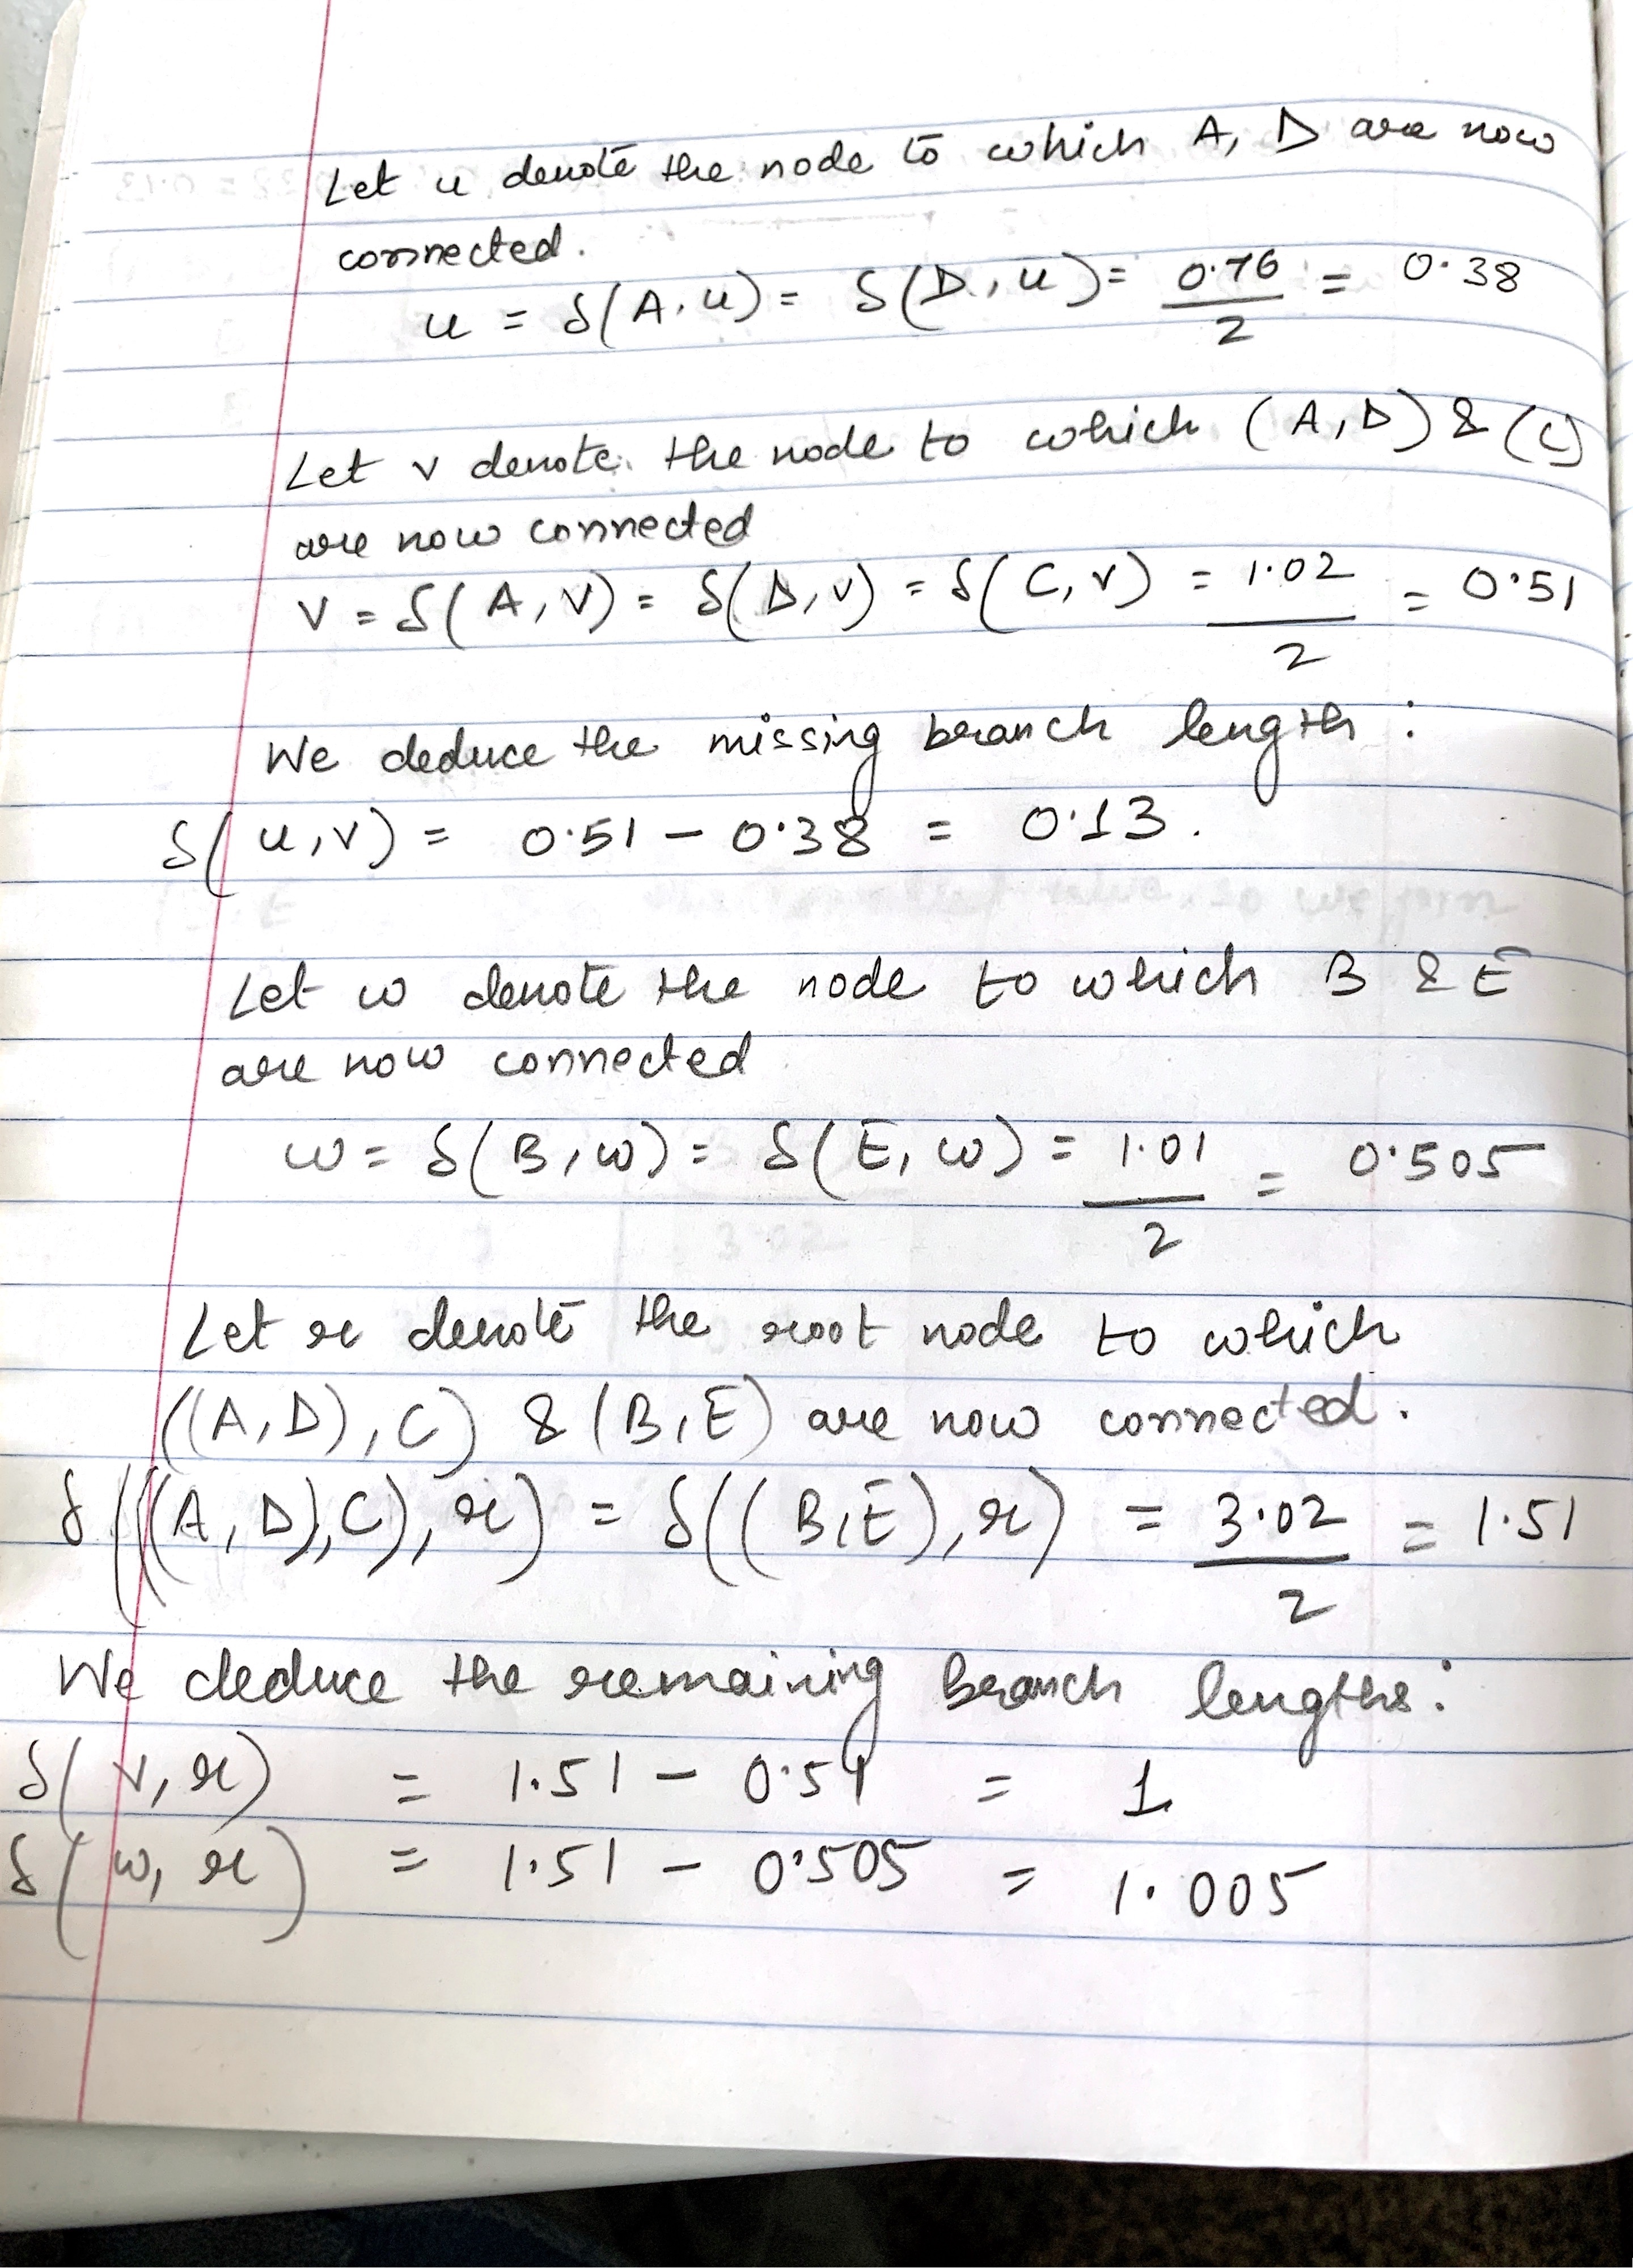 Let u denote the node to which A, D are now
connected.
u = δ(A, u) = δ(D, u) = 0.76/2 = 0.38
Let v denote the node to which (A, D) & (C)
are now connected
v = δ(A, v) = δ(D, v) = δ(C, v) = 1.02/2 = 0.51
We deduce the missing branch length :
δ(u, v) = 0.51 - 0.38 = 0.13.
Let w denote the node to which B & E
are now connected
w = δ(B, w) = δ(E, w) = 1.01/2 = 0.505
Let r denote the root node to which
((A, D), C) & (B, E) are now connected.
δ(((A, D), C), r) = δ((B, E), r) = 3.02/2 = 1.51
We deduce the remaining branch lengths:
δ(v, r) = 1.51 - 0.51 = 1
δ(w, r) = 1.51 - 0.505 = 1.005